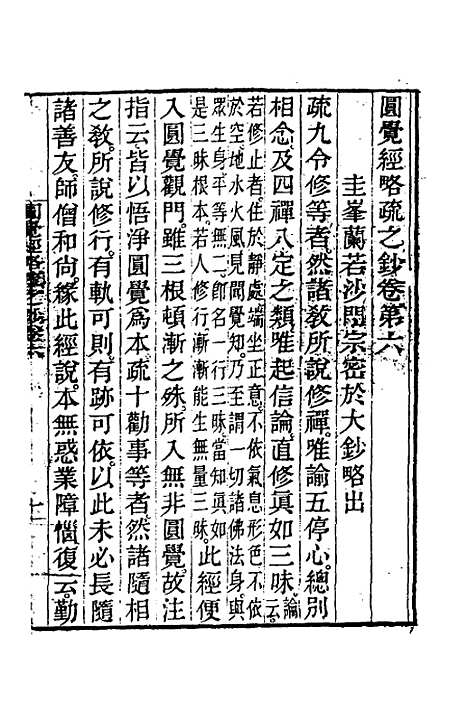 圓覺經略疏之鈔卷第六
圭峯蘭若沙門宗密於大鈔略出
疏九令修等者。然諸教所說修禪。唯諭五停心。總別
相念。及四禪八定之類。唯起信論。直修眞如三味。論云。
若修止者。住於靜處。端坐正意。不依氣息形色。不依
於空。地水火風。見聞覺知。乃至謂一切諸佛法身。與
眾生身。平等無二。即名一行三昧。當知眞如
是三昧根本。若人修行。漸漸能生無量三昧。此經便
入圓覺觀門。雖三根頓漸之殊。所入無非圓覺。故注
指云。皆以悟淨圓覺爲本。疏十勸事等者。然諸隨相
之敎。所說修行。有軌可則。有跡可依。以此未必長隨
諸善友。師僧和尙。緣此經說。本無惑業障惱。復云。勤